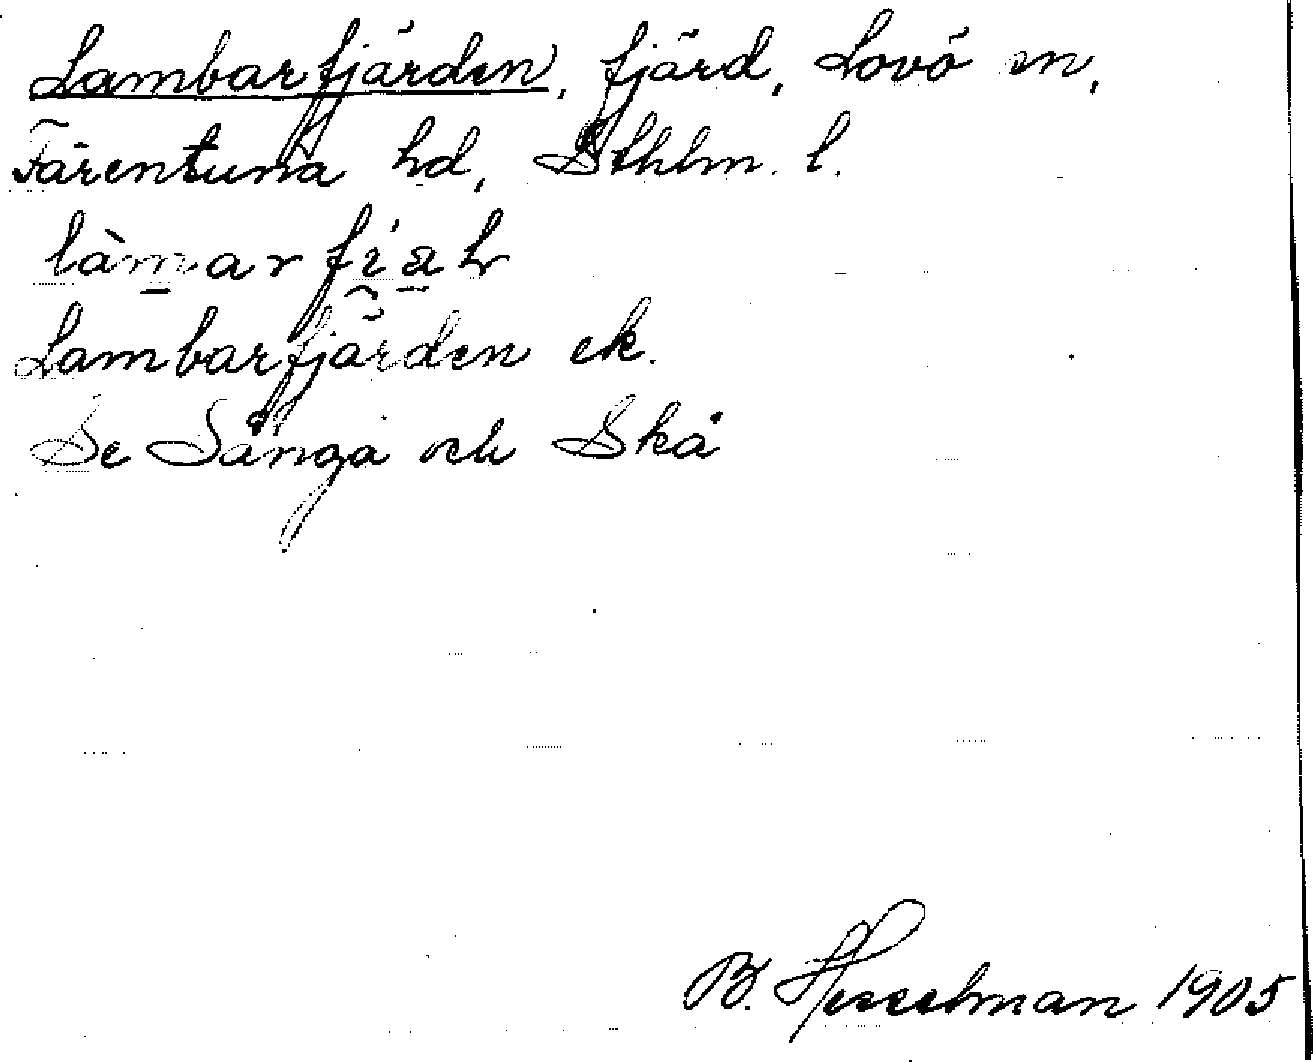 Lambarfjärden, fjärd, Lovö sn,
Färentuna hd, Sthlm. l.
Lambarfjärden ek.
Se Sånga och Skå
B. Hesselman 1905